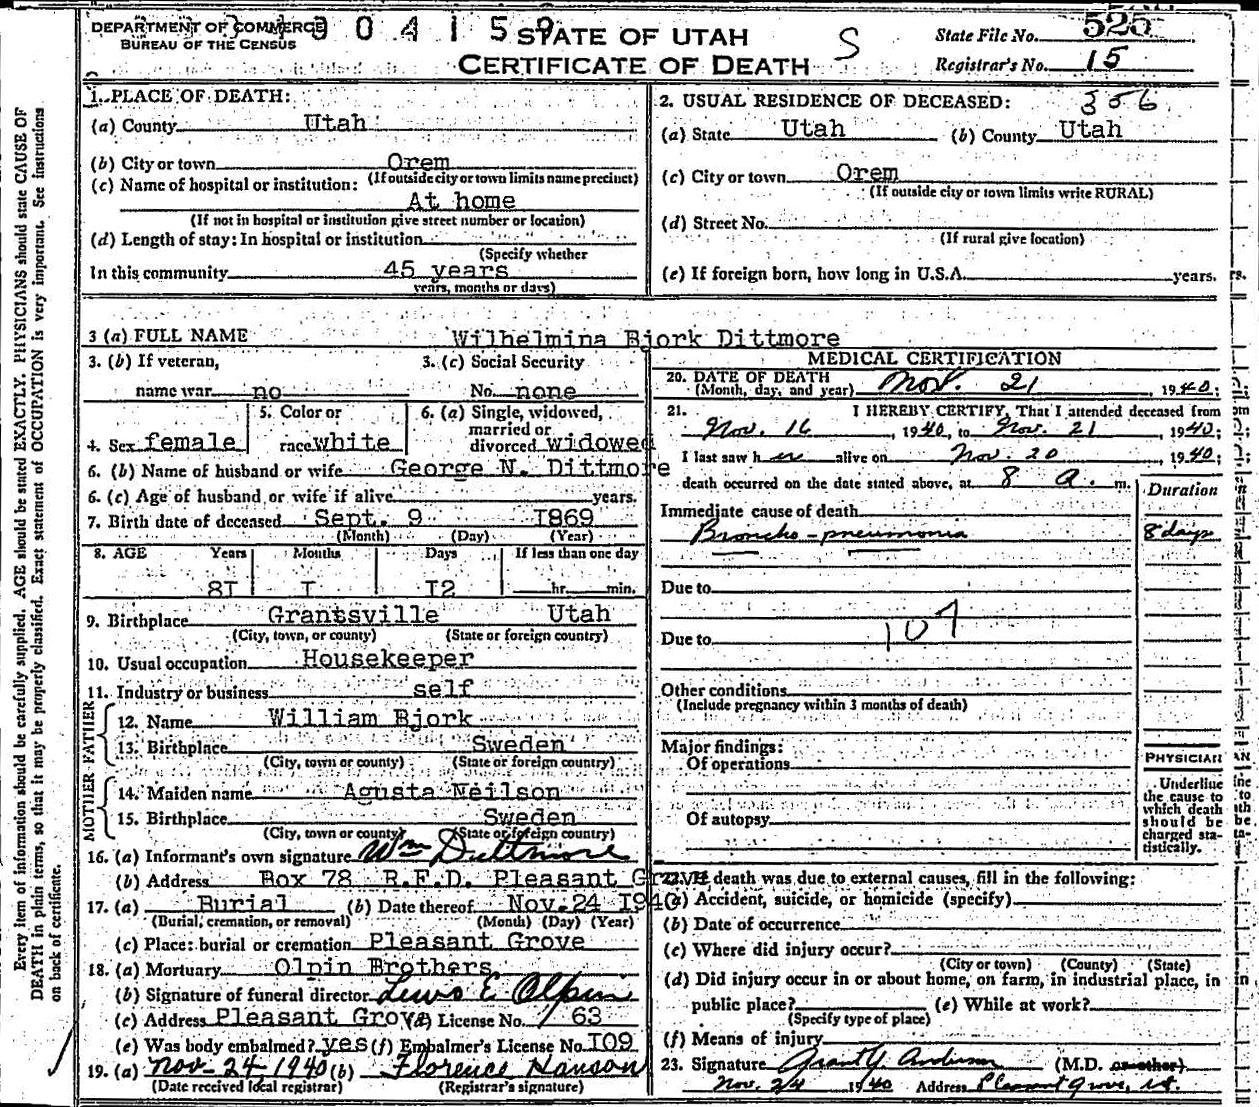 DEPARTMENT OF COMMERCE
BUREAU OF THE CENSUS
904159
STATE OF UTAH
CERTIFICATE OF DEATH
S
State File No. 525
Registrar's No. 15
1. PLACE OF DEATH:
(a) County Utah
(b) City or town Orem
(If outside city or town limits name precinct)
(c) Name of hospital or institution:
At home
(If not in hospital or institution give street number or location)
(d) Length of stay: In hospital or institution
(Specify whether
In this community 45 years
years, months or days)
2. USUAL RESIDENCE OF DECEASED: 356
(a) State Utah (b) County Utah
(c) City or town Orem
(If outside city or town limits write RURAL)
(d) Street No.
(If rural give location)
(e) If foreign born, how long in U.S.A. years.
3 (a) FULL NAME Wilhelmina Bjork Dittmore
3. (b) If veteran, 3. (c) Social Security
name war no No. none
4. Sex female 5. Color or race white 6. (a) Single, widowed, married or divorced widowed
6. (b) Name of husband or wife George N. Dittmore
6. (c) Age of husband or wife if alive years.
7. Birth date of deceased Sept. 9 1869
(Month) (Day) (Year)
8. AGE Years Months Days If less than one day
8I I I2 hr. min.
9. Birthplace Grantsville Utah
(City, town, or county) (State or foreign country)
10. Usual occupation Housekeeper
11. Industry or business self
FATHER
12. Name William Bjork
13. Birthplace Sweden
(City, town or county) (State or foreign country)
MOTHER
14. Maiden name Agusta Neilson
15. Birthplace Sweden
(City, town or county) (State or foreign country)
16. (a) Informant's own signature Wm Dittmore
(b) Address Box 78 R.F.D. Pleasant Grove
17. (a) Burial (b) Date thereof Nov. 24 I940
(Burial, cremation, or removal) (Month) (Day) (Year)
(c) Place: burial or cremation Pleasant Grove
18. (a) Mortuary Olpin Brothers
(b) Signature of funeral director Lewis E Olpin
(c) Address Pleasant Grove (d) License No. 63
(e) Was body embalmed? yes (f) Embalmer's License No. I09
19. (a) Nov 24 1940 (b) Florence Hanson
(Date received local registrar) (Registrar's signature)
MEDICAL CERTIFICATION
20. DATE OF DEATH
(Month, day, and year) Nov. 21, 1940;
21. I HEREBY CERTIFY, That I attended deceased from
Nov. 16, 1940, to Nov. 21, 1940;
I last saw her alive on Nov. 20, 1940;
death occurred on the date stated above, at 8 a. m.
Duration
Immediate cause of death
Broncho-pneumonia 8 days
Due to
107
Due to
Other conditions
(Include pregnancy within 3 months of death)
Major findings:
Of operations
Of autopsy
PHYSICIAN
Underline
the cause to
which death
should be
charged sta-
tistically.
22. If death was due to external causes, fill in the following:
(a) Accident, suicide, or homicide (specify)
(b) Date of occurrence
(c) Where did injury occur?
(City or town) (County) (State)
(d) Did injury occur in or about home, on farm, in industrial place, in
public place? (e) While at work?
(Specify type of place)
(f) Means of injury
23. Signature Grant Y. Anderson (M.D. or other)
Nov. 24 1940 Address Pleasant Grove, Ut.
Every item of information should be carefully supplied. AGE should be stated EXACTLY. PHYSICIANS should state CAUSE OF
DEATH in plain terms, so that it may be properly classified. Exact statement of OCCUPATION is very important. See instructions
on back of certificate.